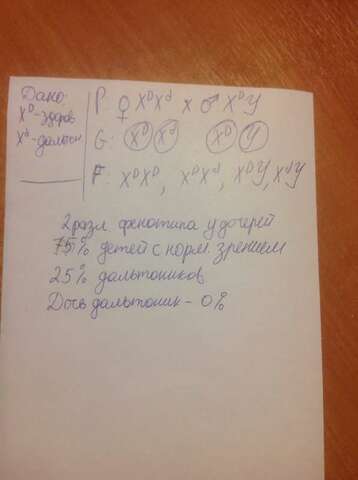 Дано:
X^D - здоров
X^d - дальтон
P: ♀ X^D X^d x ♂ X^D Y
G: X^D X^d X^D Y
F: X^D X^D, X^D X^d, X^D Y, X^d Y
2 разл. фенотипа у дочерей
75% детей с норм. зрением
25% дальтоников
Дочь дальтоник - 0%